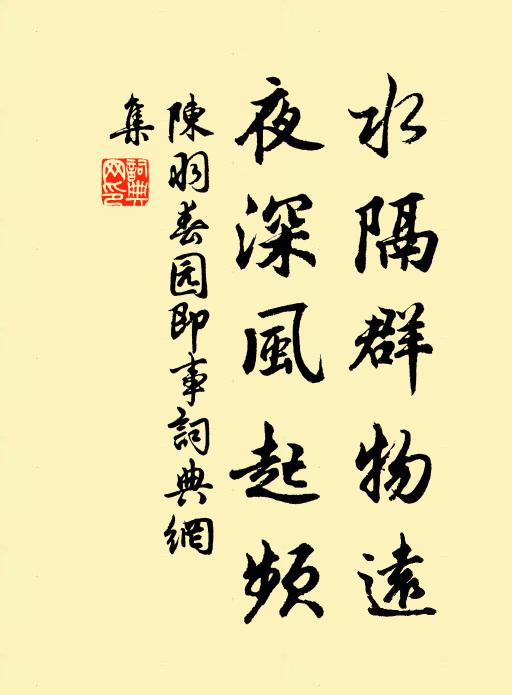 水隔群物遠
夜深風起頻
陳羽春园即事詞典網
集
詞典
网印